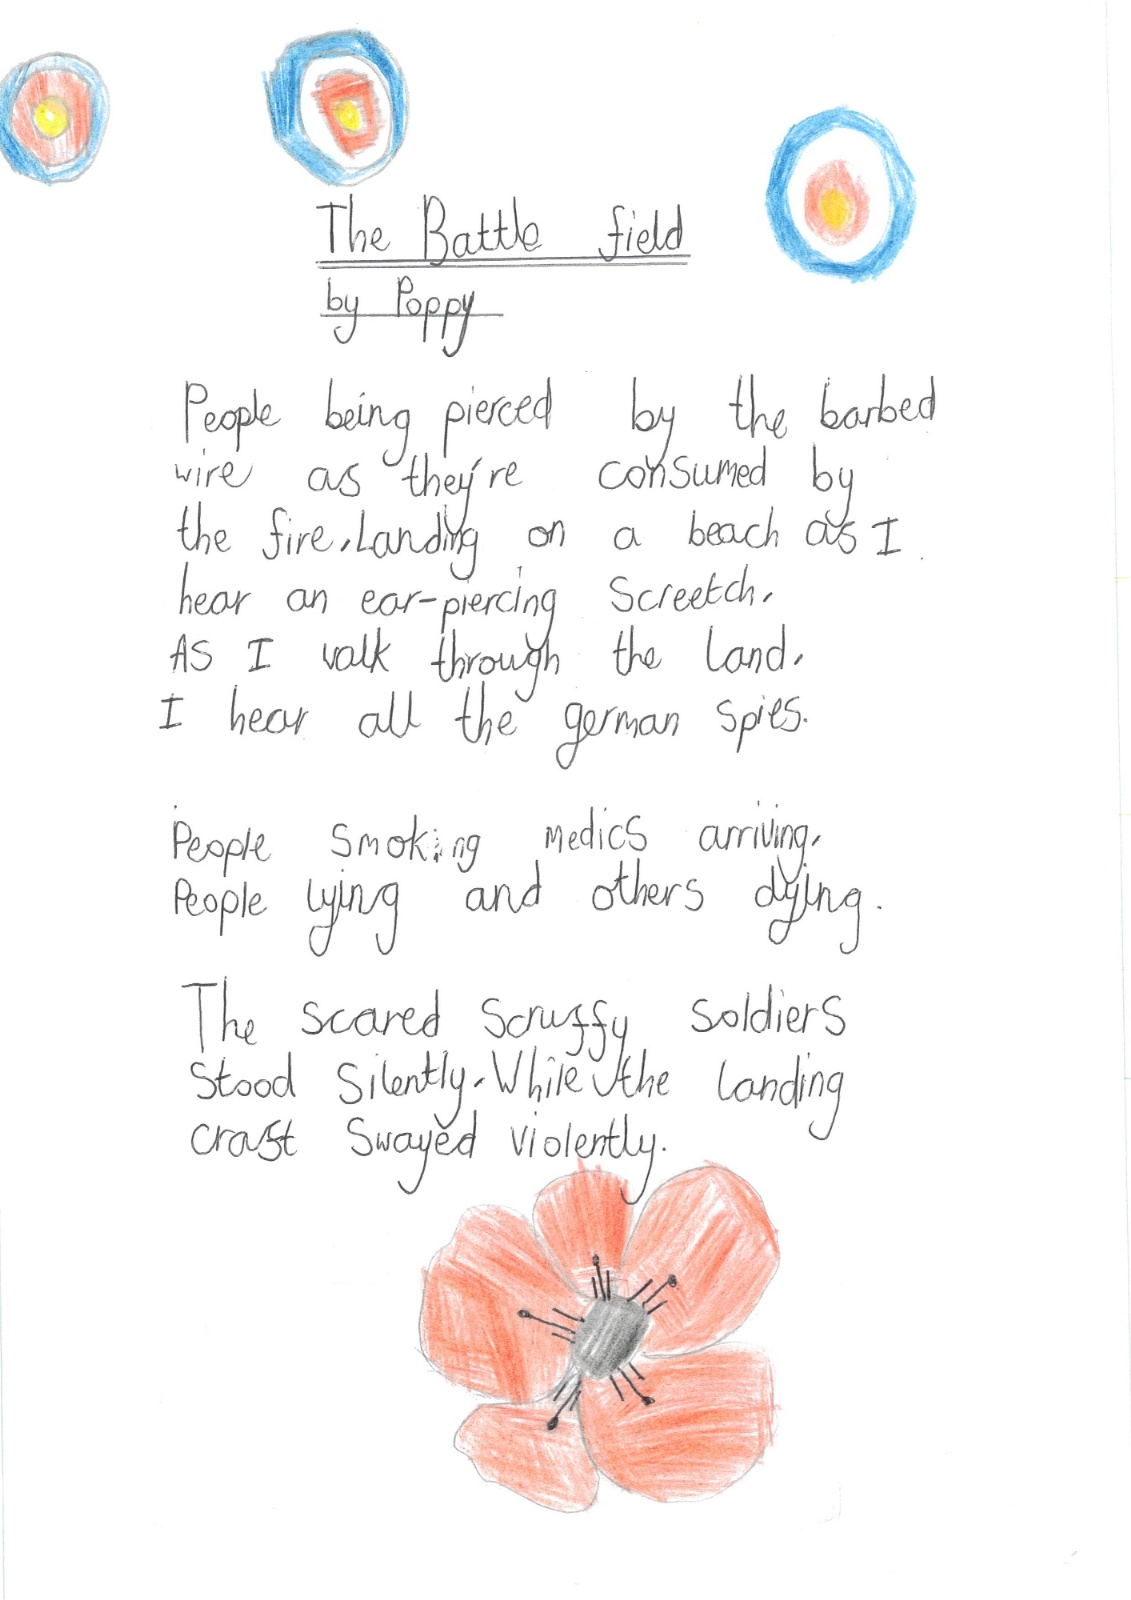 The Battle field
by Poppy
People being pierced by the barbed
wire as they're consumed by
the fire. Landing on a beach as I
hear an ear-piercing Screetch.
As I walk through the land.
I hear all the german spies.
People smoking medics arriving.
People lying and others dying.
The scared scruffy soldiers
stood silently. While the landing
craft swayed violently.